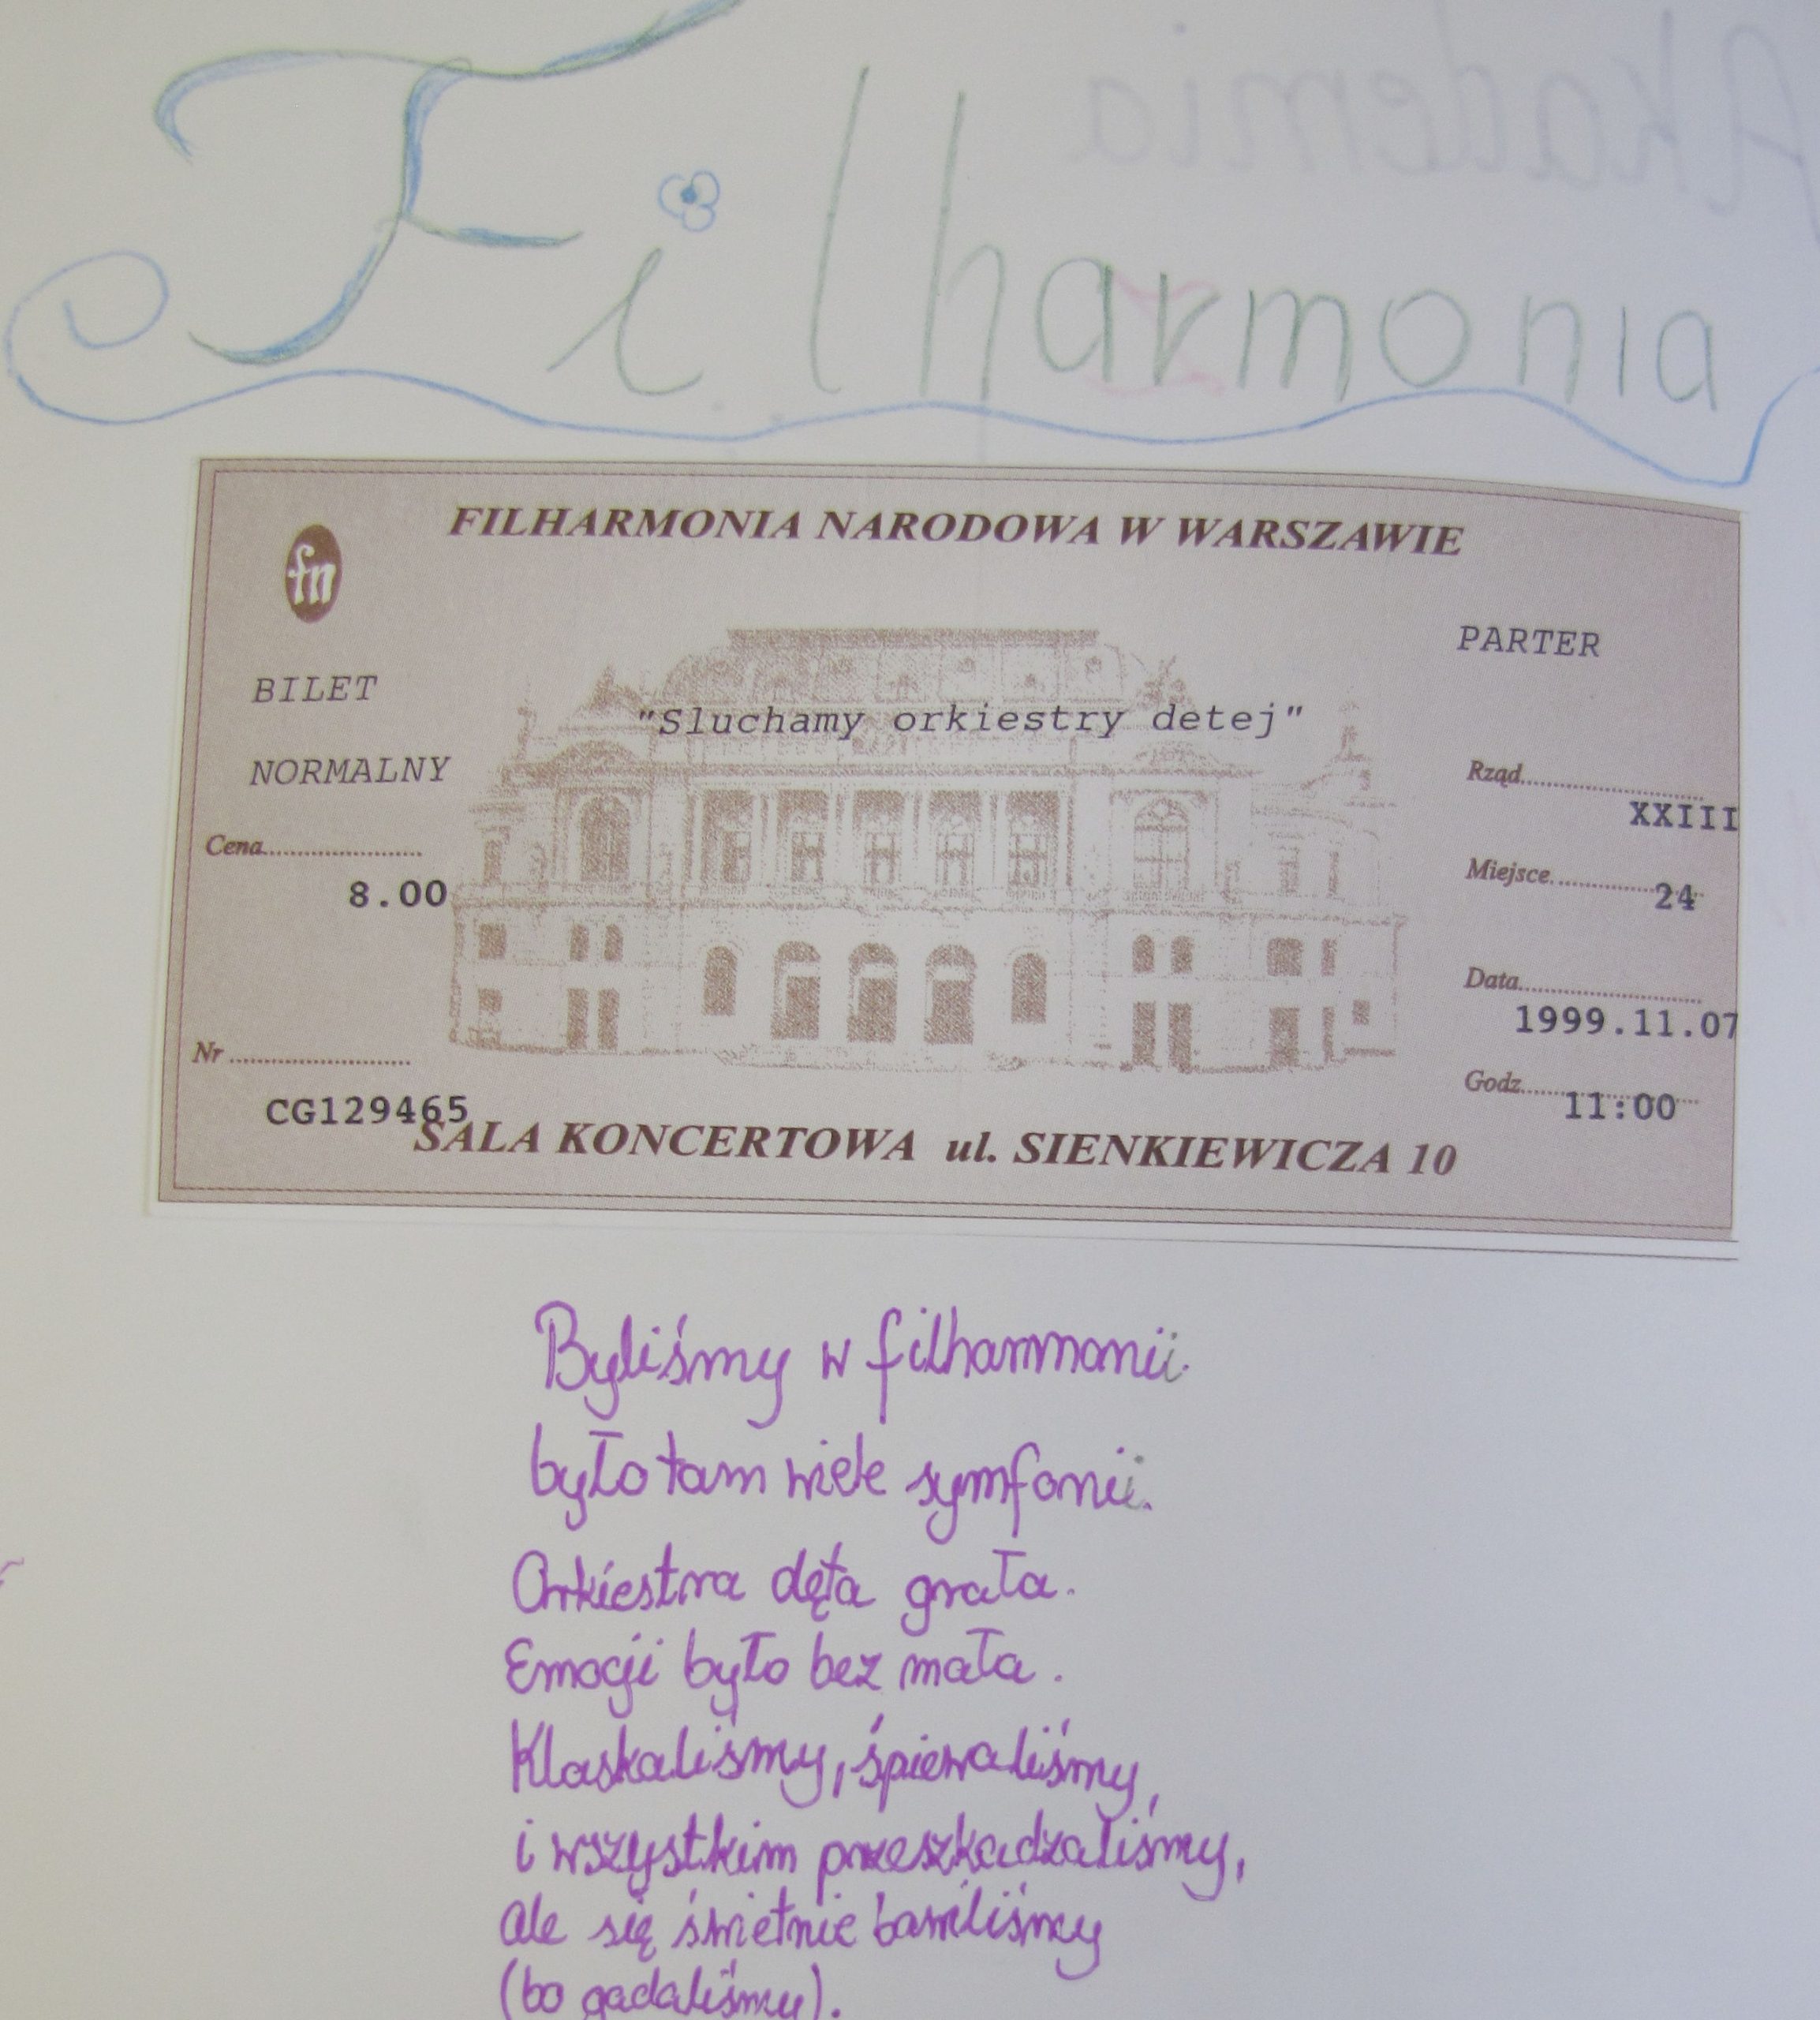 Akademia
Filharmonia
FILHARMONIA NARODOWA W WARSZAWIE
fn
PARTER
BILET
"Sluchamy orkiestry detej"
NORMALNY
Rząd
XXIII
Cena
8.00
Miejsce
24
Data
1999.11.07
Nr
CG129465
Godz.
11:00
SALA KONCERTOWA ul. SIENKIEWICZA 10
Byliśmy w filharmonii
było tam wiele symfonii.
Orkiestra dęta grała.
Emocji było bez mała.
Klaskaliśmy, śpiewaliśmy,
i wszystkim przeszkadzaliśmy,
ale się świetnie bawiliśmy
(bo gadaliśmy).